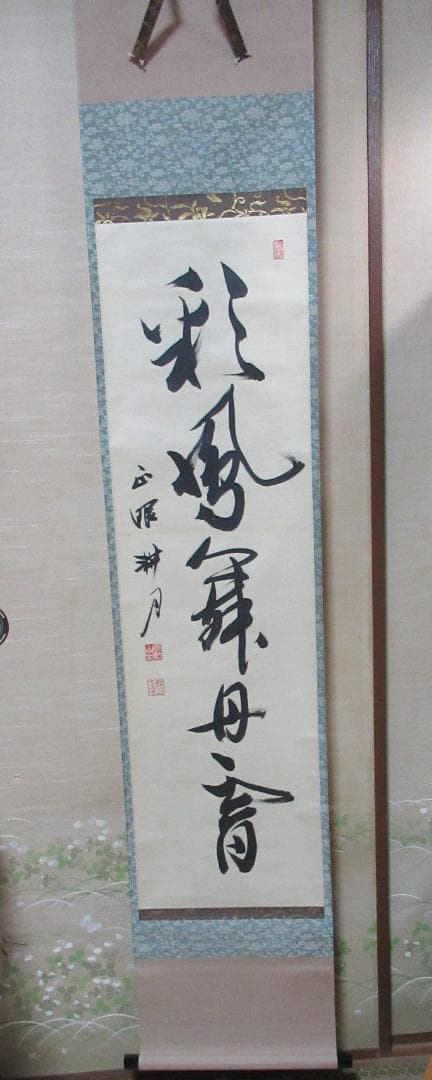 彩鳳舞丹霄
正眼 耕月